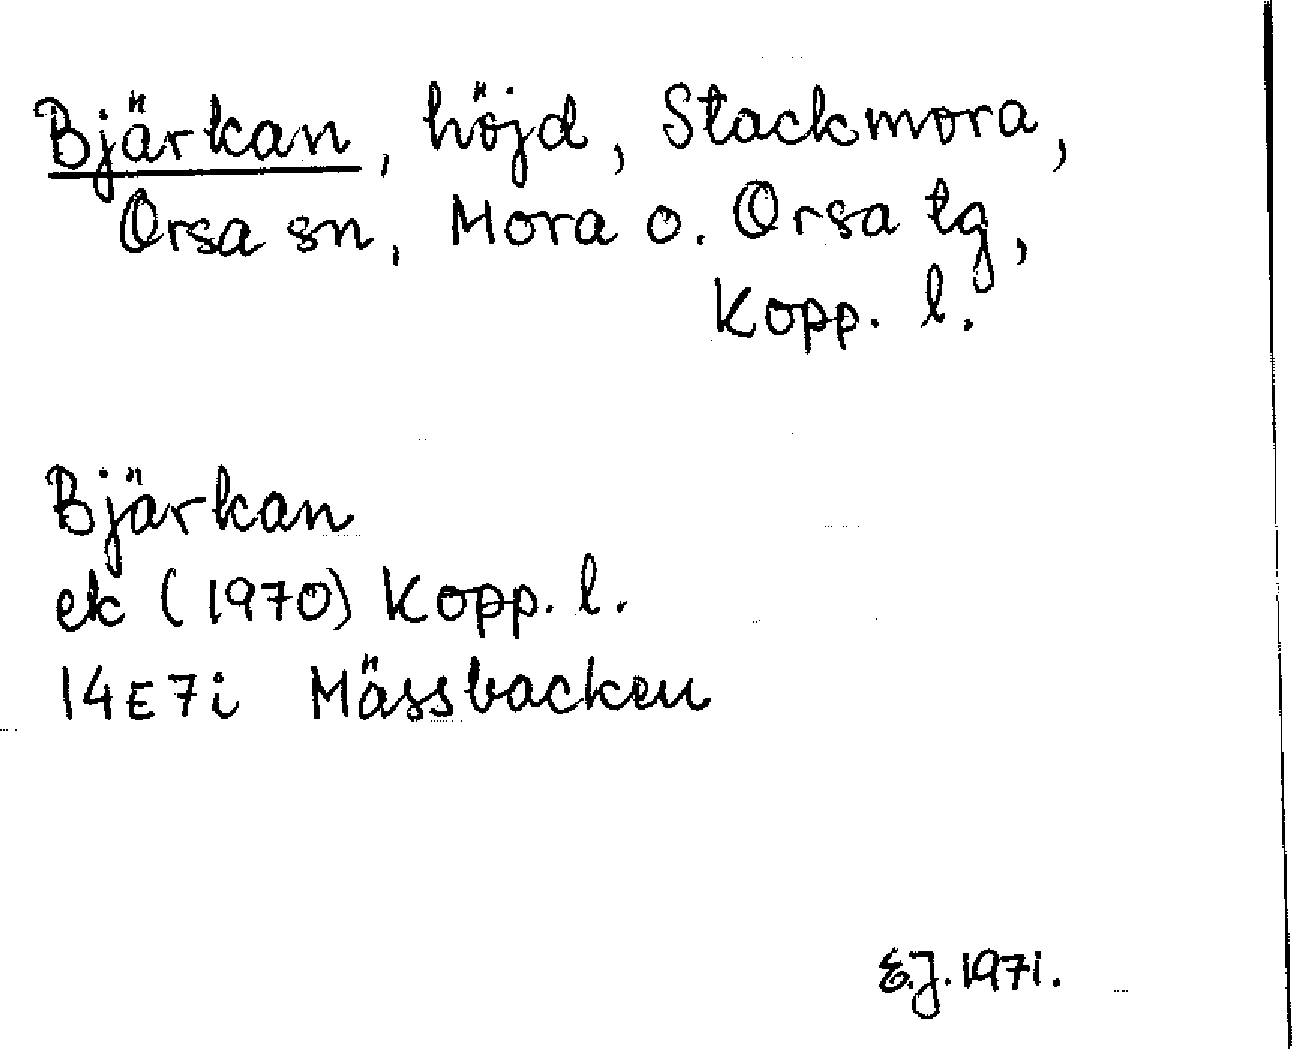 Bjärkan, höjd, Stackmora,
Orsa sn, Mora o. Orsa tg,
Kopp. l.
Bjärkan
ek (1970) Kopp. l.
14E7i Mässbacken
E.J. 1971.